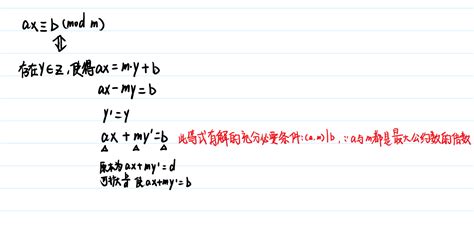 ax≡b (mod m)
⇕
存在y∈Z,使得ax=m·y+b
ax-my=b
y'=y
ax+my'=b 此等式有解的充分必要条件:(a,m)|b,∵a与m都是最大公约数的倍数
原本为ax+my'=d
可扩大b/d使ax+my'=b